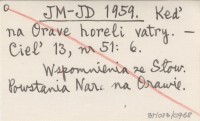 JM-JD 1959. Keď
na Orave horeli vatry. —
Cieľ 13, nr 51: 6.
Wspomnienia ze Słow.
Powstania Nar. na Orawie.